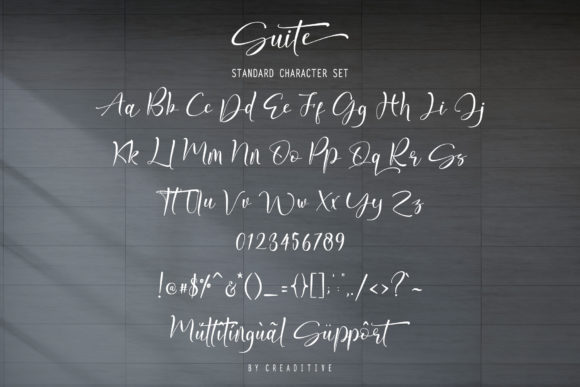 Suite
STANDARD CHARACTER SET
Aa Bb Cc Dd Ee Ff Gg Hh Ii Jj
Kk Ll Mm Nn Oo Pp Qq Rr Ss
Tt Uu Vv Ww Xx Yy Zz
0123456789
!@#$%^&*()_={}[];:'",./<>?`~
Mùltilingùãl Süppôrt
BY CREADITIVE